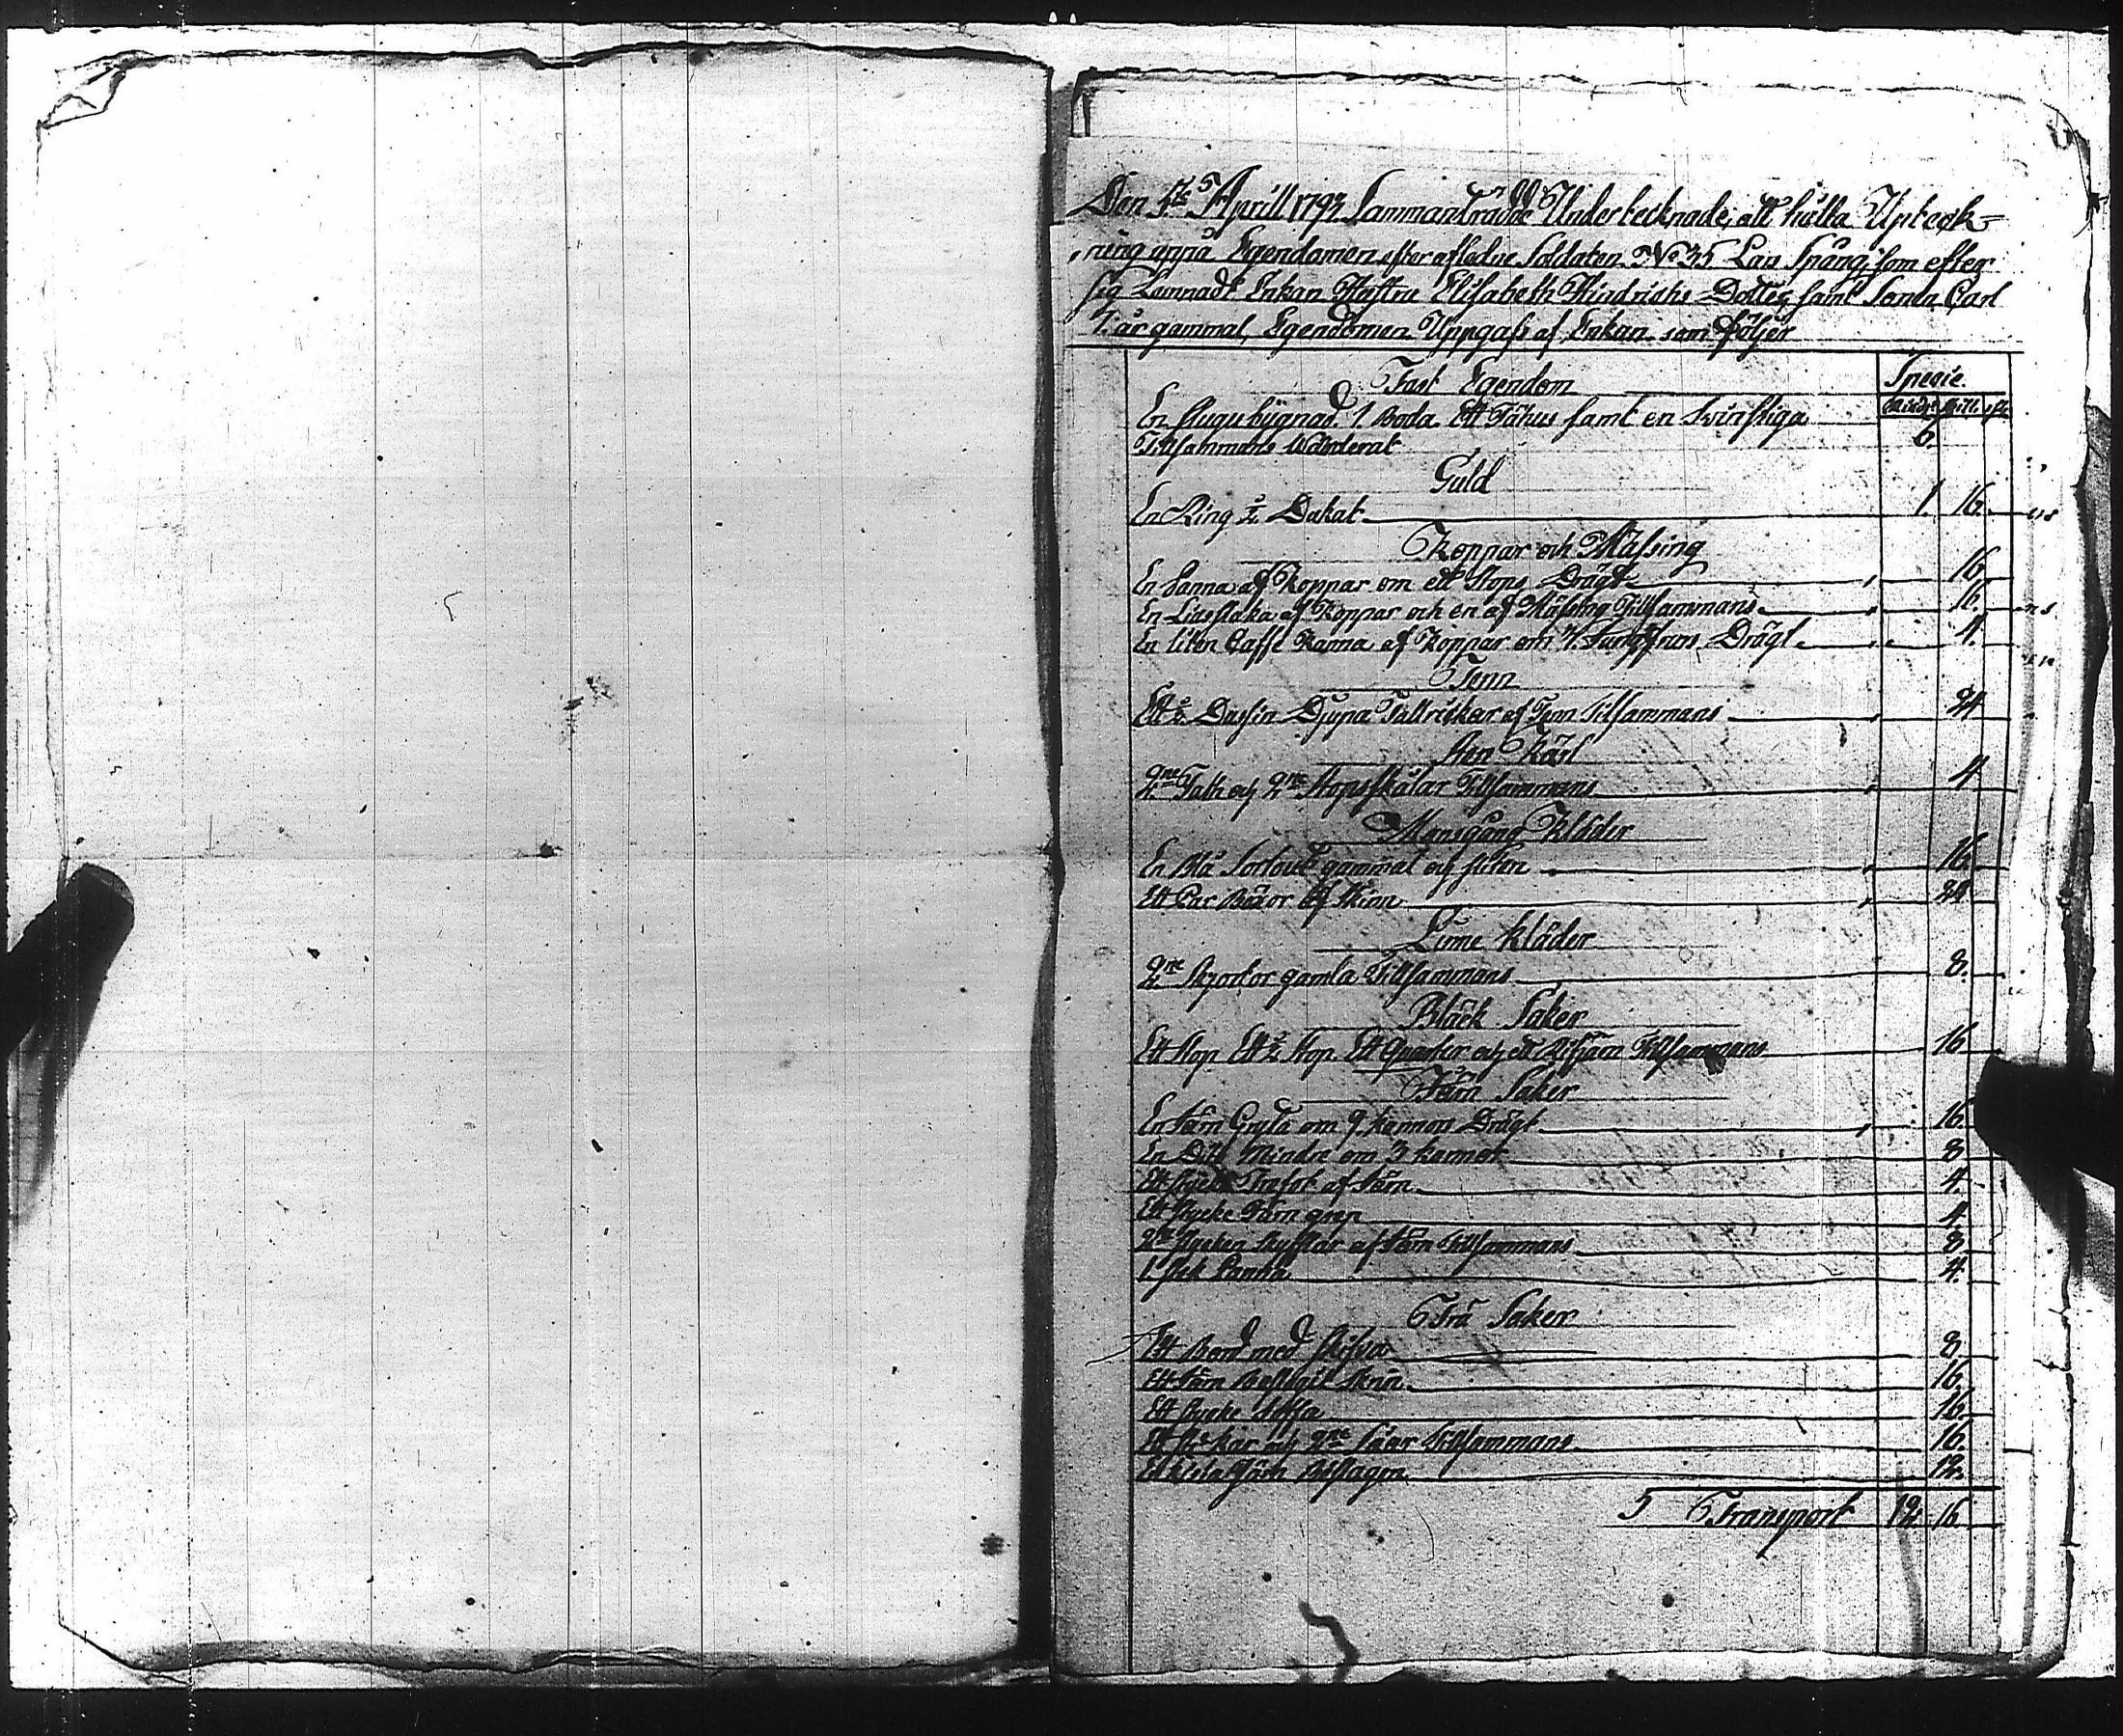 Den 5te Aprill 1793 Sammanträdde Undertecknade, att hålla Upteck=
ning uppå Egendomen efter afledne Soldaten No 35 Lars Spång, som efter
sig Lämnadt Enkan Hustru Elisabeth Hindrichs Dotter, samt Sonen Carl
7. år gammal, Egendomen Uppgafs af Enkan som följer
Fast Egendom
Specie.
Riksdr. skill. rst.
En stugu bygnad. 1. Boda Ett Fähus samt en
Tillsammans Wärderat 6.
Guld
En Ring ½ Dukat 1. 16.
Koppar och Mässing
En Panna af Koppar om ett Stops Drägt 16.
En Liusstaka af Koppar och en af Mässing Tillsammans 16.
En liten Caffe Kanna af Koppar om Drägt 4.
Tenn
Ett ½ Dussin Djupa Tallrickar af Tenn Tillsammans 24
Sten Kärl
2ne Fath och 2ne Stopsskålar Tillsammans 4
Mansgång Kläder
En Blå Sortout gammal och sliten 16
Ett Par Böxor af Skinn 24
Linne kläder
2ne Skjortor gamla Tillsammans 8.
Bläck Saker
Ett Stop Ett ½ Stop Ett Quarter och ett Rifjärn Tillsammans 16
Järn Saker
En Järn Gryta om 9. kannors Drägt 16.
En Dito Mindre om 3 kannor 8
Ett stycke Trefot af Järn 4.
Ett stycke Järn grep 4
2ne stycken af Järn Tillsammans 8
1. stek Panna 4.
Trä Saker
Ett Bord med skifva 8
Ett Järn Beslagit Skrin 16
Ett stycke 16.
Ett kar och 2ne Såar Tillsammans 16.
12.
5 Transport 12 16